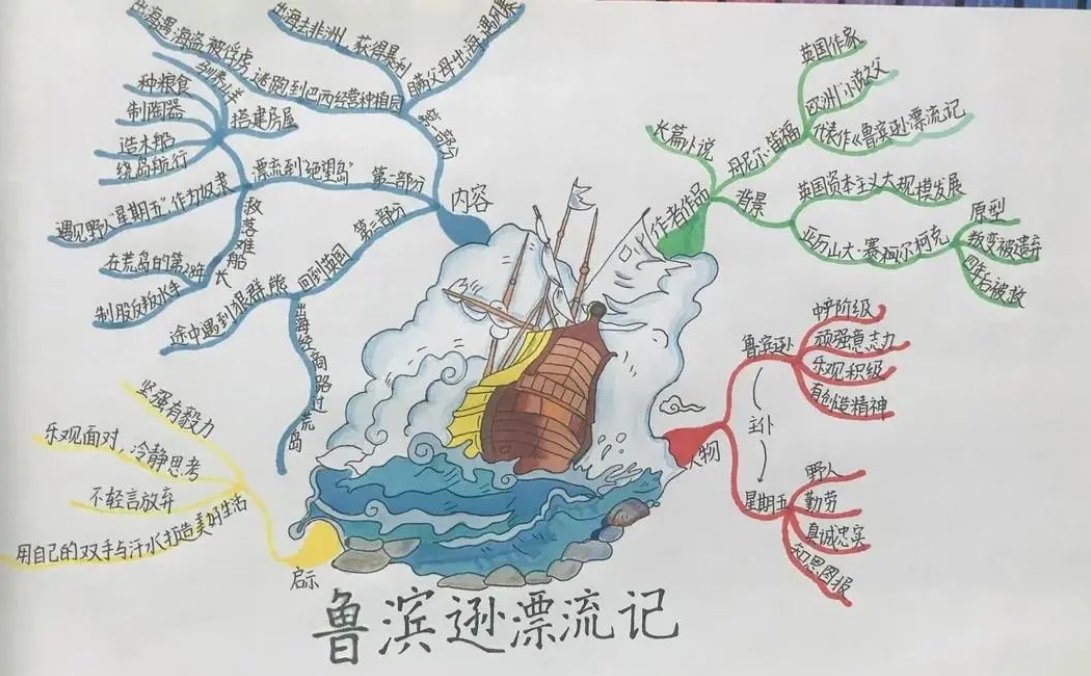 鲁滨逊漂流记
内容
第一部分
瞒父母出海,遇风暴
出海去非洲,获得暴利
出海遇海盗被俘虏,逃跑到巴西经营种植园
第二部分
漂流到"绝望岛"
搭建房屋
驯养山羊
种粮食
制陶器
造木船
绕岛航行
遇见野人"星期五"作为奴隶
救落难船长
在荒岛的第28年
制服反叛水手
第三部分
回到英国
途中遇到狼群,熊
出海经商路过荒岛
作者作品
长篇小说
丹尼尔·笛福
英国作家
欧洲"小说之父"
代表作《鲁滨逊漂流记》
背景
英国资本主义大规模发展
亚历山大·赛柯尔柯克
原型
叛变被遗弃
四年后被救
人物
鲁滨逊
中阶级
顽强意志力
乐观积级
有创造精神
主仆
星期五
野人
勤劳
真诚忠实
知恩图报
启示
坚强有毅力
乐观面对,冷静思考
不轻言放弃
用自己的双手与汗水打造美好生活